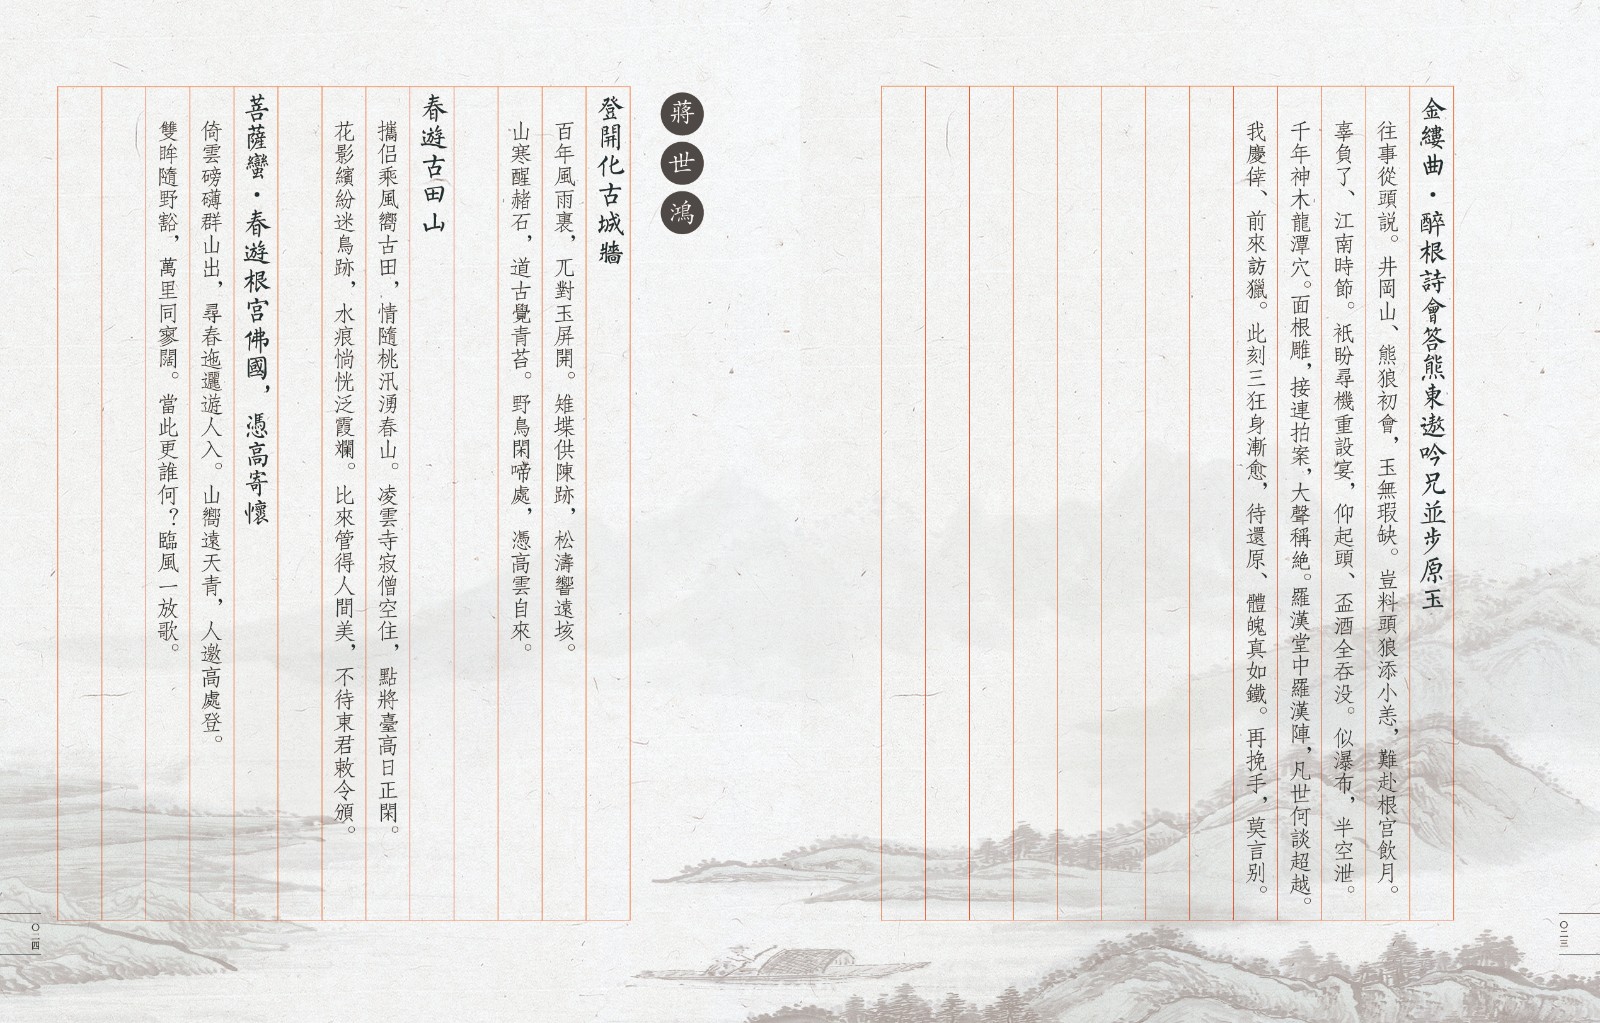 金縷曲·醉根詩會答熊東遨吟兄並步原玉
往事從頭説。井岡山、熊狼初會，玉無瑕缺。豈料頭狼添小恙，難赴根宫飲月。
辜負了、江南時節。祇盼尋機重設宴，仰起頭、盃酒全吞没。似瀑布，半空泄。
千年神木龍潭穴。面根雕，接連拍案，大聲稱絶。羅漢堂中羅漢陣，凡世何談超越。
我慶倖、前來訪獵。此刻三狂身漸愈，待還原、體魄真如鐵。再挽手，莫言别。
〇二三
蔣世鴻
登開化古城牆
百年風雨裏，兀對玉屏開。雉堞供陳跡，松濤響遠垓。
山寒醒赭石，道古覺青苔。野鳥閑啼處，憑高雲自來。
春遊古田山
攜侣乘風嚮古田，情隨桃汛湧春山。凌雲寺寂僧空住，點將臺高日正閑。
花影繽紛迷鳥跡，水痕惝恍泛霞斕。比來管得人間美，不待東君敕令頒。
菩薩蠻·春遊根宫佛國，憑高寄懷
倚雲磅礴群山出，尋春迤邐遊人入。山嚮遠天青，人邀高處登。
雙眸隨野豁，萬里同寥闊。當此更誰何？臨風一放歌。
〇二四